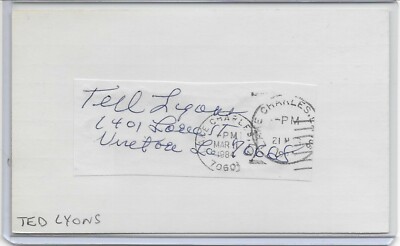 Ted Lyons
1401 Loree St
Vinton La 70668
LAKE CHARLES
PM
MAR
198
70601
CHARLES
PM
21 M
TED LYONS